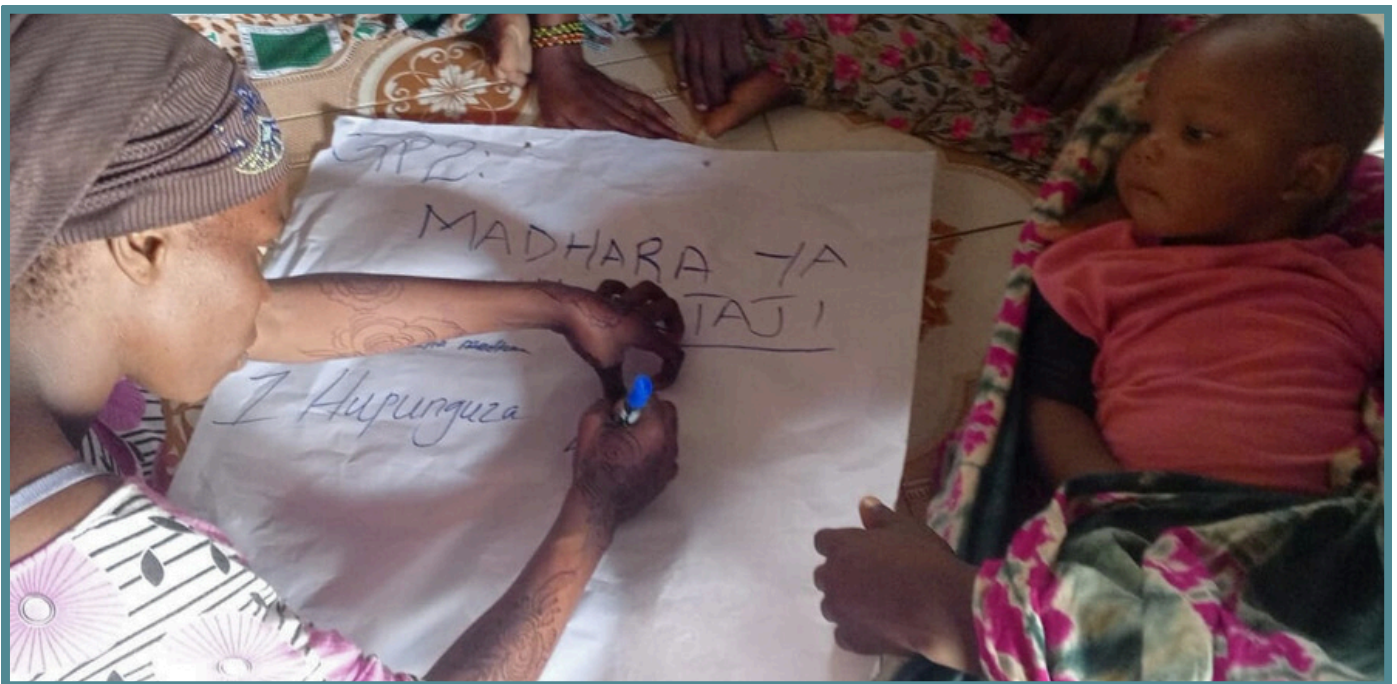 GP2:
MADHARA YA
TAJI
1 Hupunguza